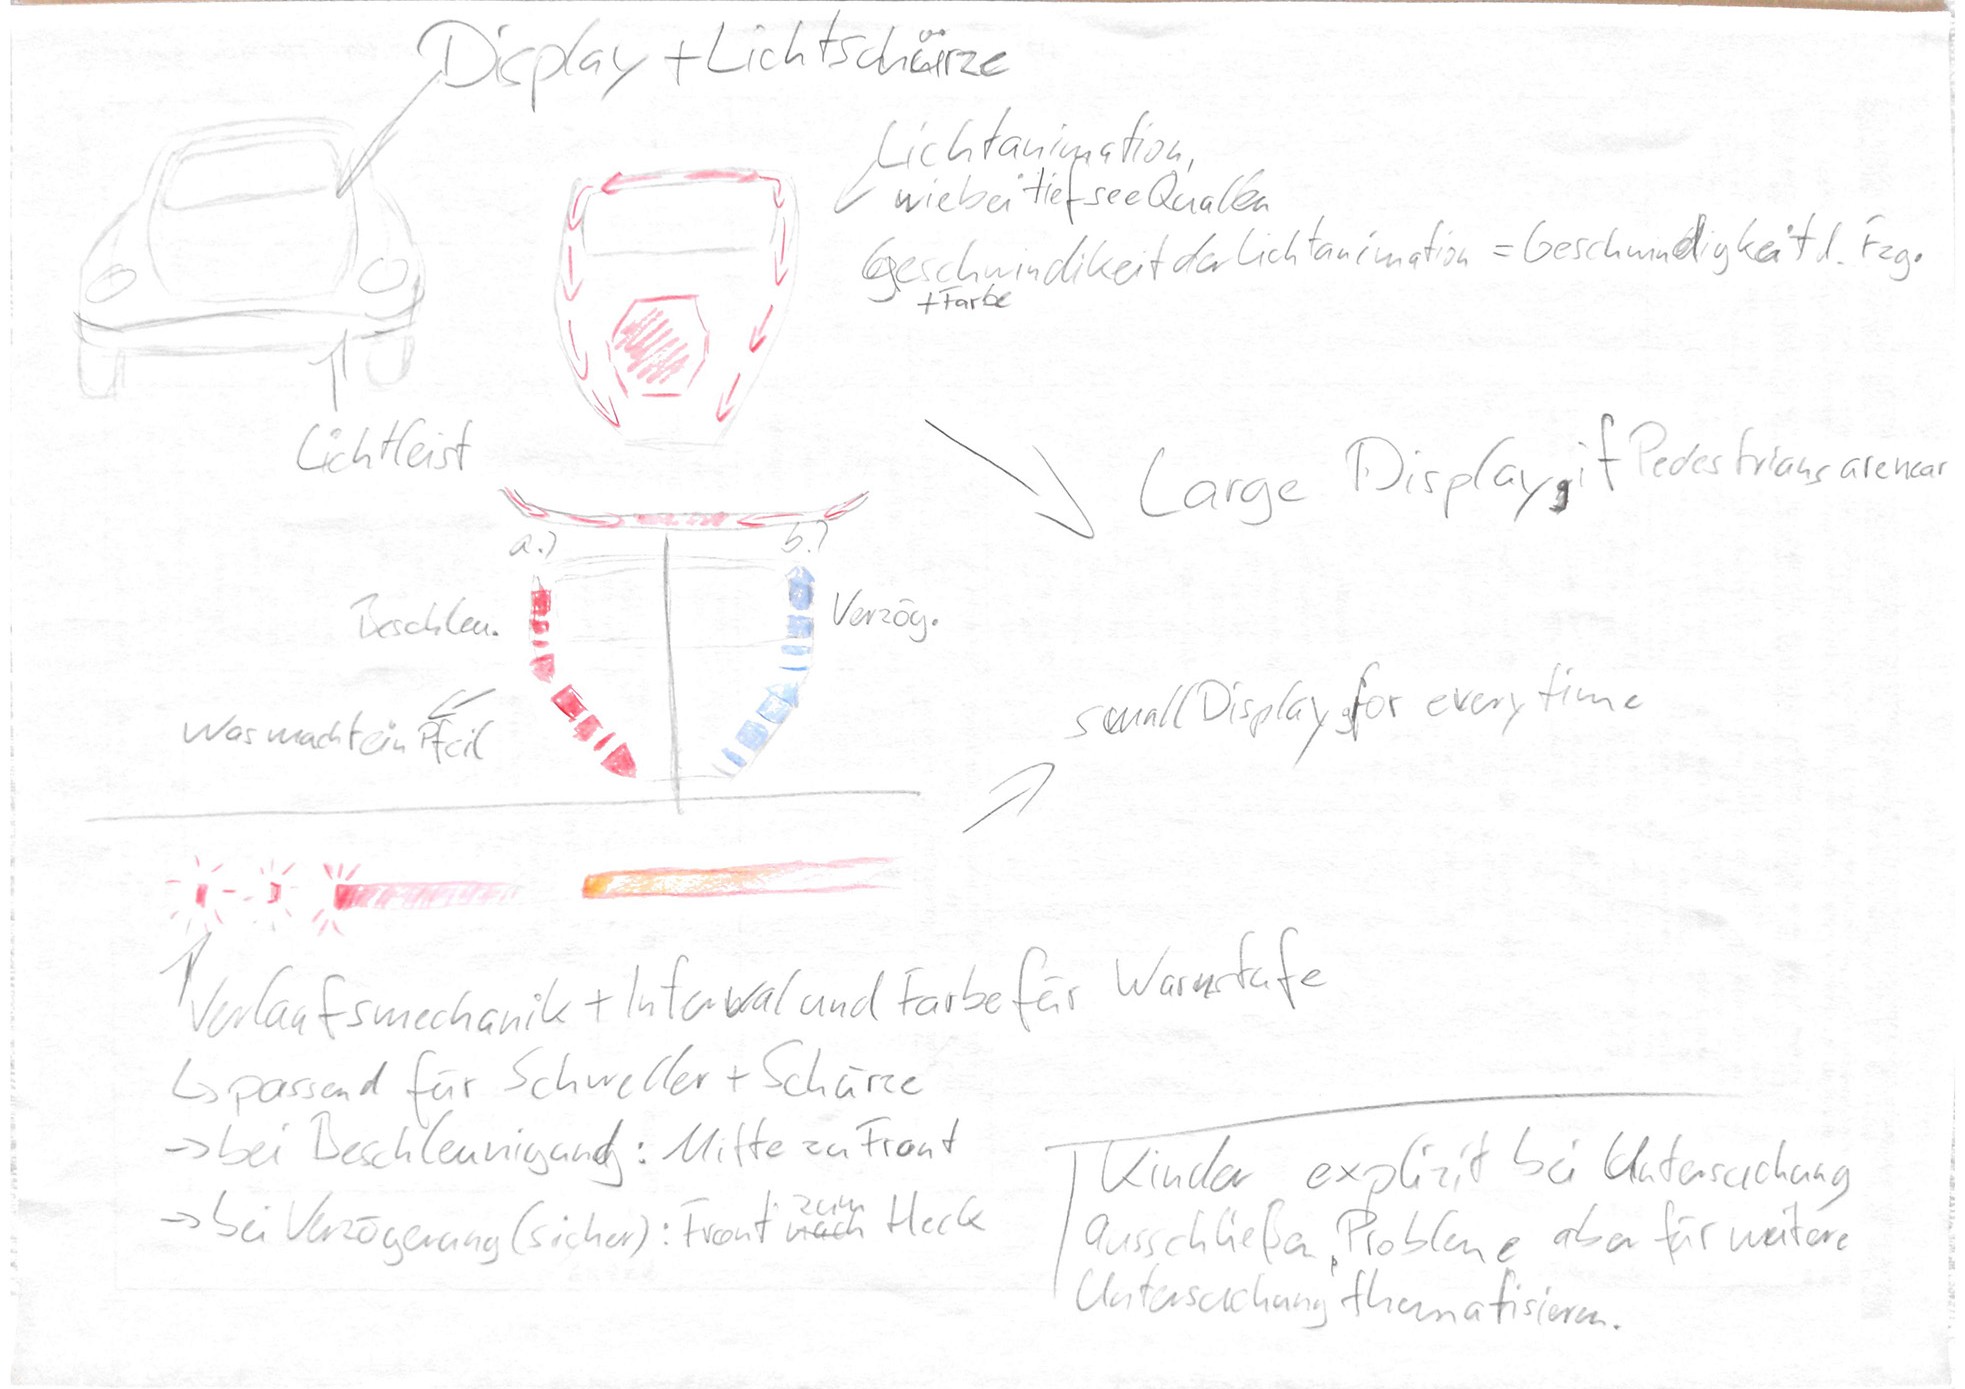 Display + Lichtschürze
Lichtanimation,
wie bei tiefsee Quallen
Geschwindikeit der Lichtanimation = Geschwindigkeit d. Fzg.
+ Farbe
Lichtleist
Large Display, if Pedestrians are near
a.)
b.)
Beschleu.
Verzög.
small Display, for every time
Was macht ein Pfeil
Verlaufsmechanik + Interval und Farbe für Warnstufe
↳ passend für Schweller + Schürze
→ bei Beschleunigung: Mitte zu Front
→ bei Verzögerung (sicher): Front zum nach Heck
Kinder explizit bei Untersuchung
ausschließen, Probleme aber für weitere
Untersuchung thematisieren.